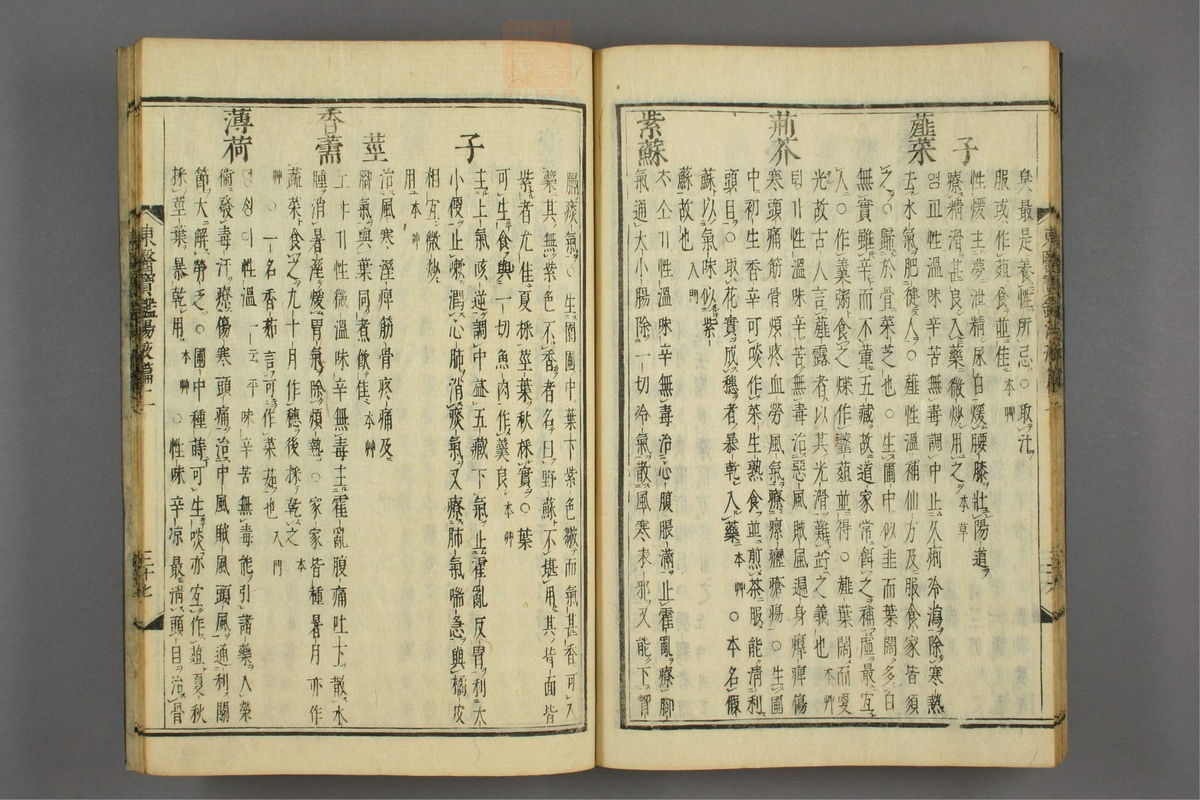 臭最是養性所忌○取汁
服或作葅食並佳本艸
子
性煖主夢泄精尿白煖腰膝壯陽道
療精滑甚良入藥微炒用之本草
薤菜
염교性溫味辛苦無毒調中止久痢冷瀉除寒熱
去水氣肥健人○薤性溫補仙方及服食家皆須
之○歸於骨菜之也○生圃中似韭而葉闊多白
無實雖辛而不葷五藏故道家常餌之補虛最宜
人○作羹粥食之煠作虀葅並得○薤葉闊而更
光故古人言薤露者以其光滑難竚之義也本艸
荊芥
뎡가性溫味辛苦無毒治惡風賊風遍身𤸷痺傷
寒頭痛筋骨煩疼血勞風氣療瘰癧瘡瘍○生圃
中初生香辛可啖作菜生熟食並煎茶服能淸利
頭目○取花實成穗者暴乾入藥本艸○本名假
蘇以氣味似紫
蘇故也入門
紫蘇
性溫味辛無毒治心腹脹滿止霍亂療脚
氣通大小腸除一切冷氣散風寒表邪又能下胷
膈痰氣○生園圃中葉下紫色皺而氣甚香可入
藥其無紫色不香者名曰野蘇不堪用其背面皆
紫者尤佳夏採莖葉秋採實○葉
可生食與一切魚肉作羹良本艸
子
主上氣咳逆調中益五藏下氣止霍亂反胃利大
小便止嗽潤心肺消痰氣又療肺氣喘急與橘皮
相宜微炒
用本艸
莖
治風寒溼痺筋骨疼痛及
脚氣與葉同煮飮佳本艸
香薷
性微溫味辛無毒主霍亂腹痛吐下散水
腫消暑溼煖胃氣除煩熱○家家皆種暑月亦作
蔬菜食之九十月作穗後採乾之本
艸○一名香葇言可作菜茹也入門
薄荷
영싱이性溫一云平味辛苦無毒能引諸藥入榮
衛發毒汗療傷寒頭痛治中風賊風頭風通利關
節大解勞乏○圃中種蒔可生啖亦宜作葅夏秋
採莖葉暴乾用本艸○性味辛凉最淸頭目治骨
東醫寶鑑湯液篇二
三十七